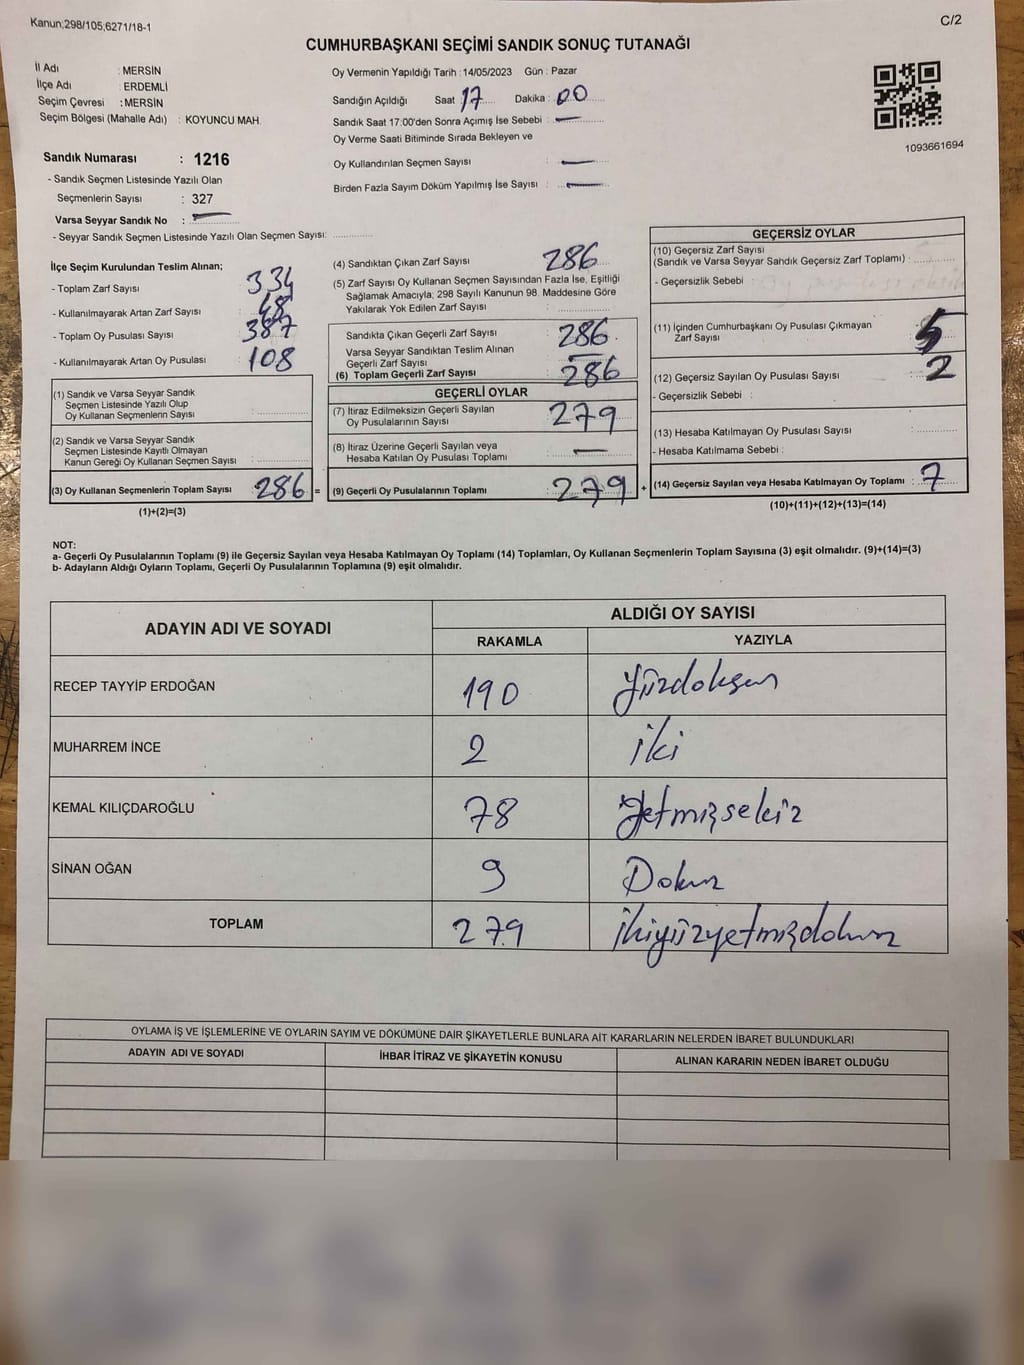 Kanun;298/105,6271/18-1
C/2
CUMHURBAŞKANI SEÇİMİ SANDIK SONUÇ TUTANAĞI
İl Adı : MERSİN
İlçe Adı : ERDEMLİ
Seçim Çevresi : MERSİN
Seçim Bölgesi (Mahalle Adı) : KOYUNCU MAH.
Oy Vermenin Yapıldığı Tarih : 14/05/2023 Gün : Pazar
Sandığın Açıldığı Saat : 17 Dakika : 00
Sandık Saat 17:00'den Sonra Açımış İse Sebebi : —
Oy Verme Saati Bitiminde Sırada Bekleyen ve
Oy Kullandırılan Seçmen Sayısı : —
Birden Fazla Sayım Döküm Yapılmış İse Sayısı : —
1093661694
Sandık Numarası : 1216
- Sandık Seçmen Listesinde Yazılı Olan
Seçmenlerin Sayısı : 327
Varsa Seyyar Sandık No : —
- Seyyar Sandık Seçmen Listesinde Yazılı Olan Seçmen Sayısı:
İlçe Seçim Kurulundan Teslim Alınan;
- Toplam Zarf Sayısı : 334
- Kullanılmayarak Artan Zarf Sayısı : 48
- Toplam Oy Pusulası Sayısı : 387
- Kullanılmayarak Artan Oy Pusulası : 108
(1) Sandık ve Varsa Seyyar Sandık
Seçmen Listesinde Yazılı Olup
Oy Kullanan Seçmenlerin Sayısı :
(2) Sandık ve Varsa Seyyar Sandık
Seçmen Listesinde Kayıtlı Olmayan
Kanun Gereği Oy Kullanan Seçmen Sayısı :
(3) Oy Kullanan Seçmenlerin Toplam Sayısı : 286 =
(1)+(2)=(3)
(4) Sandıktan Çıkan Zarf Sayısı : 286
(5) Zarf Sayısı Oy Kullanan Seçmen Sayısından Fazla İse, Eşitliği
Sağlamak Amacıyla; 298 Sayılı Kanunun 98. Maddesine Göre
Yakılarak Yok Edilen Zarf Sayısı :
Sandıkta Çıkan Geçerli Zarf Sayısı : 286
Varsa Seyyar Sandıktan Teslim Alınan
Geçerli Zarf Sayısı : —
(6) Toplam Geçerli Zarf Sayısı : 286
GEÇERLİ OYLAR
(7) İtiraz Edilmeksizin Geçerli Sayılan
Oy Pusulalarının Sayısı : 279
(8) İtiraz Üzerine Geçerli Sayılan veya
Hesaba Katılan Oy Pusulası Toplamı : —
(9) Geçerli Oy Pusulalarının Toplamı : 279 +
GEÇERSİZ OYLAR
(10) Geçersiz Zarf Sayısı
(Sandık ve Varsa Seyyar Sandık Geçersiz Zarf Toplamı) :
- Geçersizlik Sebebi :
(11) İçinden Cumhurbaşkanı Oy Pusulası Çıkmayan
Zarf Sayısı : 5
(12) Geçersiz Sayılan Oy Pusulası Sayısı : 2
- Geçersizlik Sebebi :
(13) Hesaba Katılmayan Oy Pusulası Sayısı :
- Hesaba Katılmama Sebebi :
(14) Geçersiz Sayılan veya Hesaba Katılmayan Oy Toplamı : 7
(10)+(11)+(12)+(13)=(14)
NOT:
a- Geçerli Oy Pusulalarının Toplamı (9) ile Geçersiz Sayılan veya Hesaba Katılmayan Oy Toplamı (14) Toplamları, Oy Kullanan Seçmenlerin Toplam Sayısına (3) eşit olmalıdır. (9)+(14)=(3)
b- Adayların Aldığı Oyların Toplamı, Geçerli Oy Pusulalarının Toplamına (9) eşit olmalıdır.
ADAYIN ADI VE SOYADI
ALDIĞI OY SAYISI
RAKAMLA YAZIYLA
RECEP TAYYİP ERDOĞAN 190 Yüzdoksan
MUHARREM İNCE 2 iki
KEMAL KILIÇDAROĞLU 78 Yetmişsekiz
SİNAN OĞAN 9 Dokuz
TOPLAM 279 İkiyüzyetmişdokuz
OYLAMA İŞ VE İŞLEMLERİNE VE OYLARIN SAYIM VE DÖKÜMÜNE DAİR ŞİKAYETLERLE BUNLARA AİT KARARLARIN NELERDEN İBARET BULUNDUKLARI
ADAYIN ADI VE SOYADI İHBAR İTİRAZ VE ŞİKAYETİN KONUSU ALINAN KARARIN NEDEN İBARET OLDUĞU